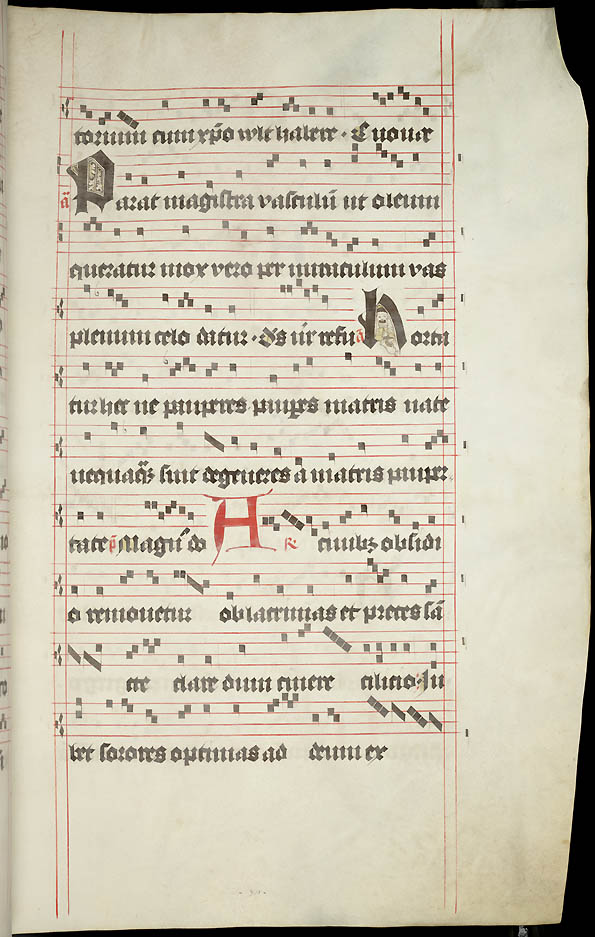 torium cum xpo vult habere · Euouae
a Parat magistra vasculu ut oleum
queratur mox vero per nuticulum vas
plenum celo datur · ds ur refu a Horta
tur hec ne pauperes paupes matris nate
nequaq sint degeneres a matris pauper
tate p Magn do A R civib obsidi
o removetur ob lacrimas et preces sa
cte clare dum cinere cilicio · Iu
bet sorores optimas ad deum ex